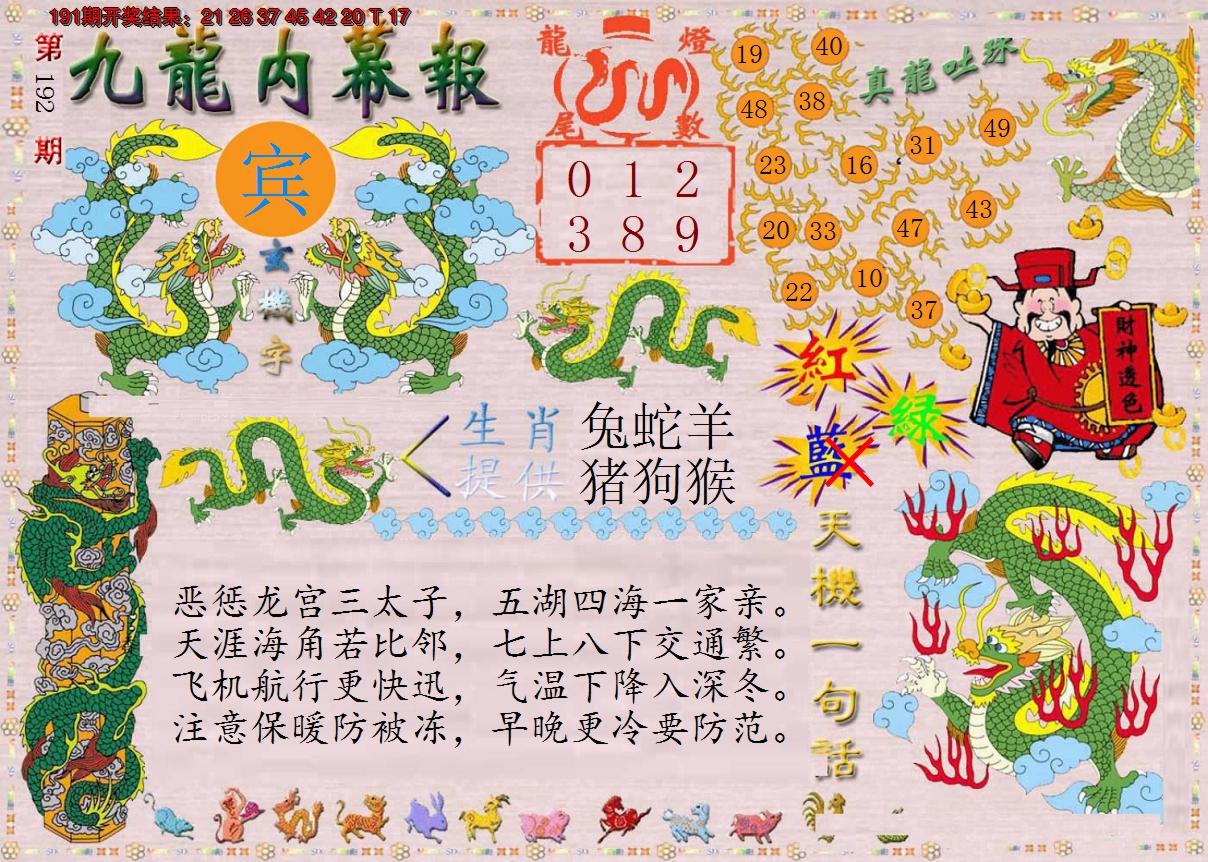 191期开奖结果：21 26 37 45 42 20 T 17
第192期
九龍内幕報
宾
玄機字
龍燈
尾數
0 1 2
3 8 9
真龍吐珠
19 40
48 38
31 49
23 16
43
20 33 47
22 10
37
財神透色
紅
綠
藍
生肖 兔蛇羊
提供 猪狗猴
天機一句话
恶惩龙宫三太子，五湖四海一家亲。
天涯海角若比邻，七上八下交通繁。
飞机航行更快迅，气温下降入深冬。
注意保暖防被冻，早晚更冷要防范。